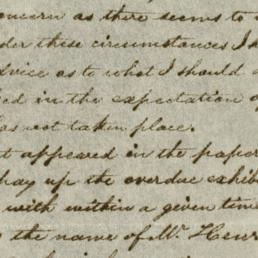 concern as there seems to
these circumstances I
advice as to what I should
in the expectation
has not taken place.
appeared in the paper
pay up the overdue
with within a given time
the name of Mr. Henr